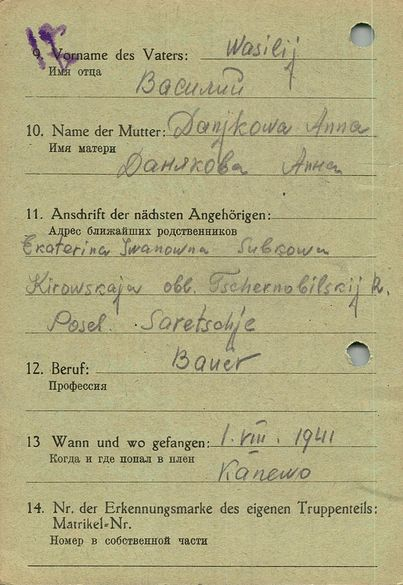 9. Vorname des Vaters: Wasilij
Имя отца
Василий
10. Name der Mutter: Danjkowa Anna
Имя матери
Данякова Анна
11. Anschrift der nächsten Angehörigen:
Адрес ближайших родственников
Ekaterina Iwanowna Subkowa
Kirowskaja obl. Tschernobilskij R.
Posel. Saretschje
12. Beruf: Bauer
Профессия
13 Wann und wo gefangen: 1. VIII. 1941
Когда и где попал в плен
Kanewo
14. Nr. der Erkennungsmarke des eigenen Truppenteils:
Matrikel-Nr.
Номер в собственной части